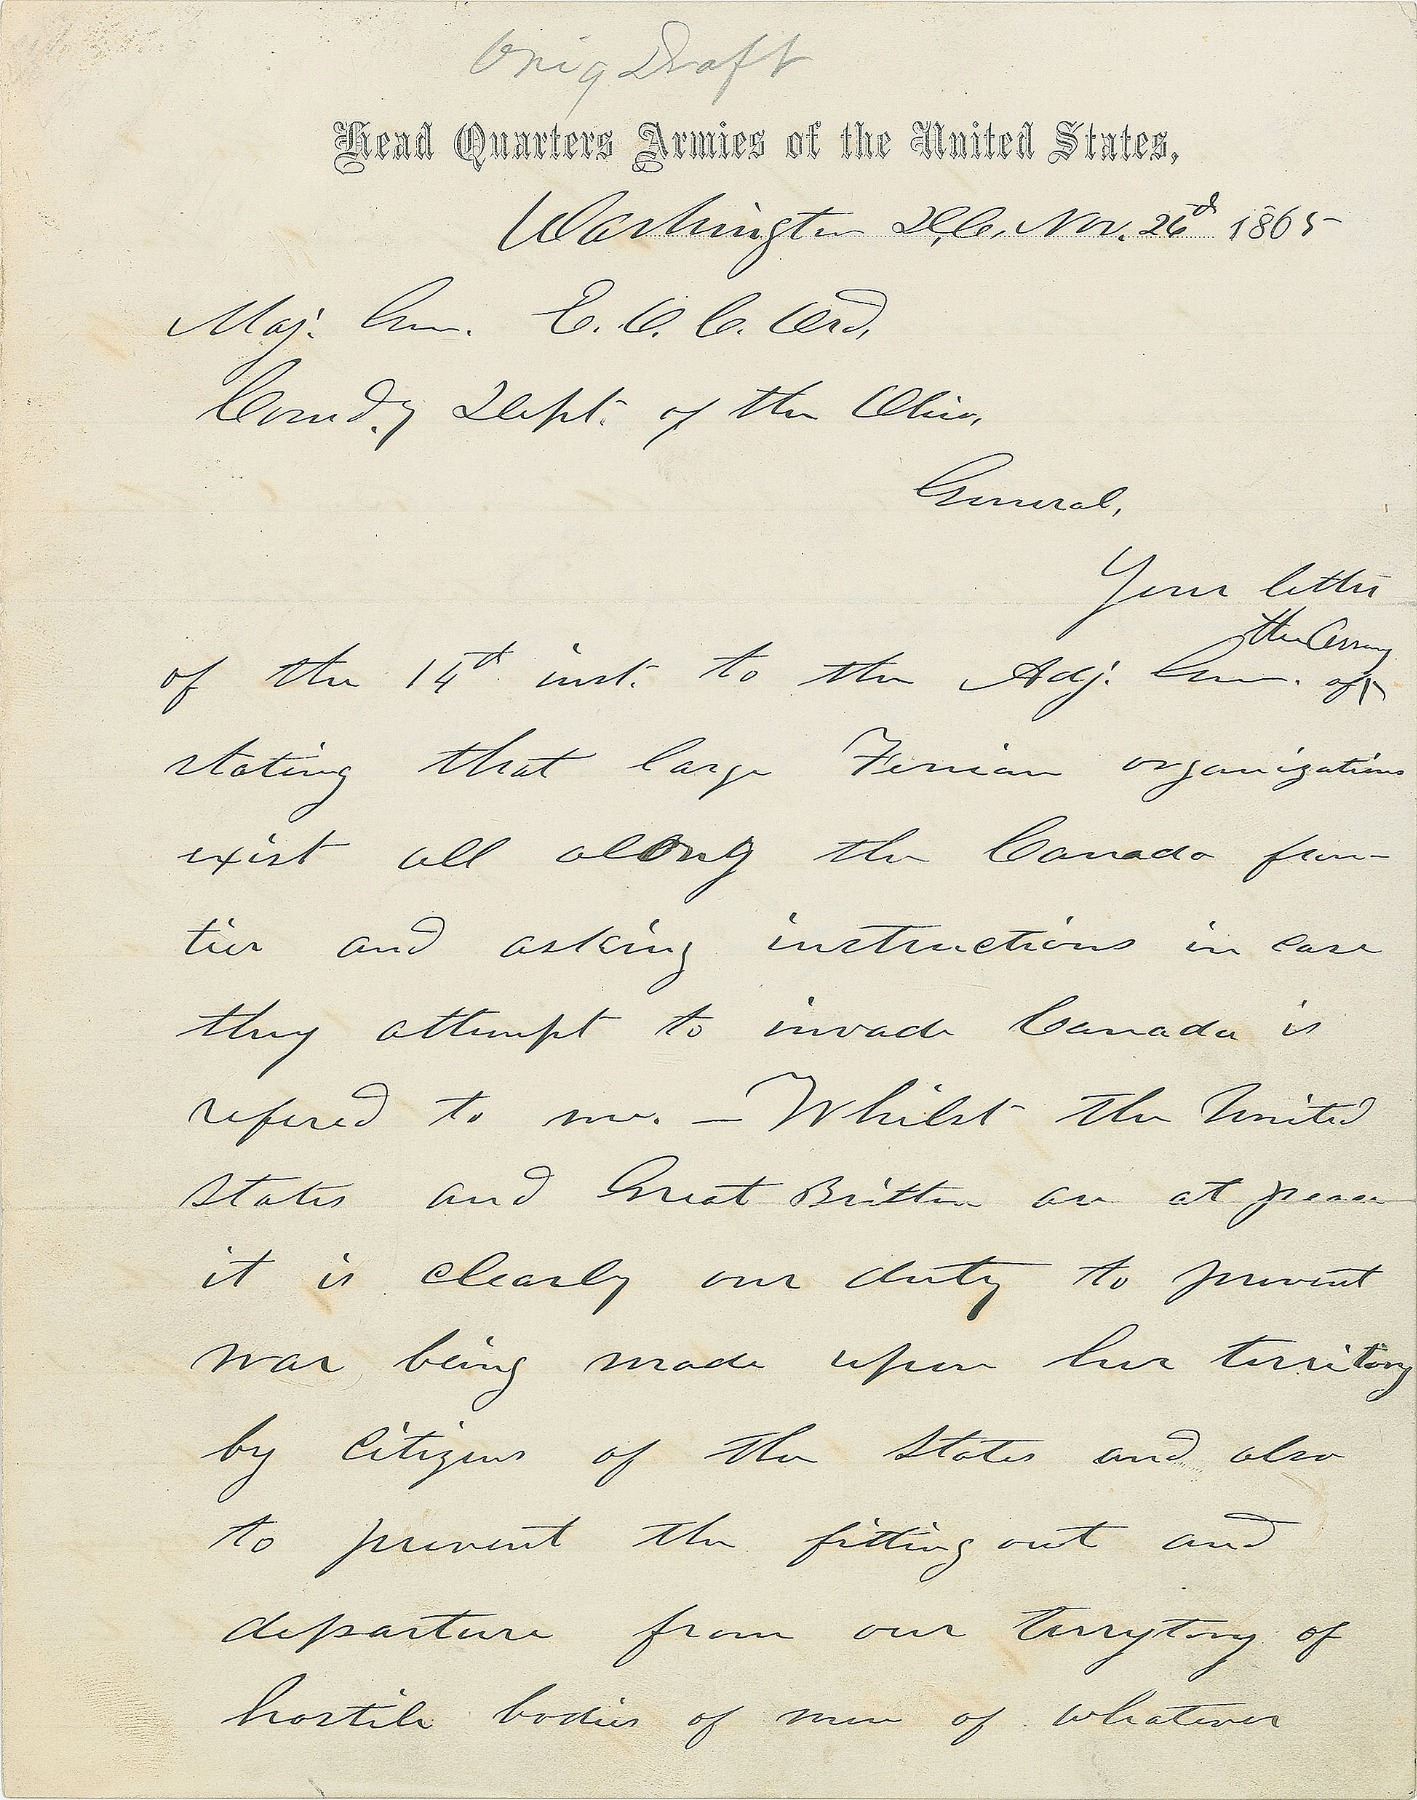 Orig Draft
Head Quarters Armies of the United States,
Washington D.C., Nov. 26th 1865
Maj. Gen. E. O. C. Ord,
Comd.g Dept. of the Ohio,
General,
Your letter
of the 14th inst. to the Adj. Gen. of the Army
stating that large Fenian organizations
exist all along the Canada fron-
tier and asking instructions in case
they attempt to invade Canada is
refered to me. — Whilst the United
States and Great Britten are at peace
it is clearly our duty to prevent
war being made upon her territory
by citizens of the States and also
to prevent the fitting out and
departure from our terrytory of
hostile bodies of men of whatever